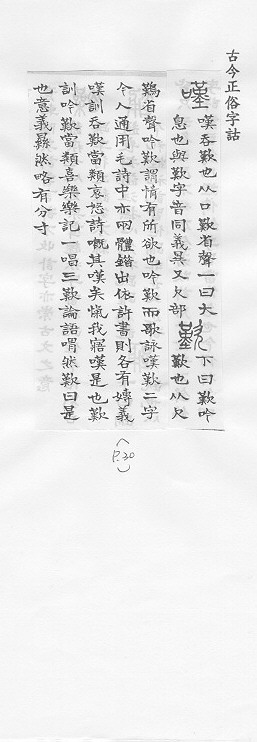 古今正俗字詁
嘆 嘆吞歎也从口歎省聲一曰大
息也與歎字音同義異又欠部 歎 下曰歎吟
歎也从欠
鷬省聲吟歎謂情有所欲也吟歎而歌詠嘆歎二字
今人通用毛詩中亦兩體錯出依許書則各有專義
嘆訓吞歎當類哀怒詩嘅其嘆矣愾我寤嘆是也歎
訓吟歎當類喜樂樂記一唱三歎論語喟然歎曰是
也意義縣然略有分寸
(P.20)